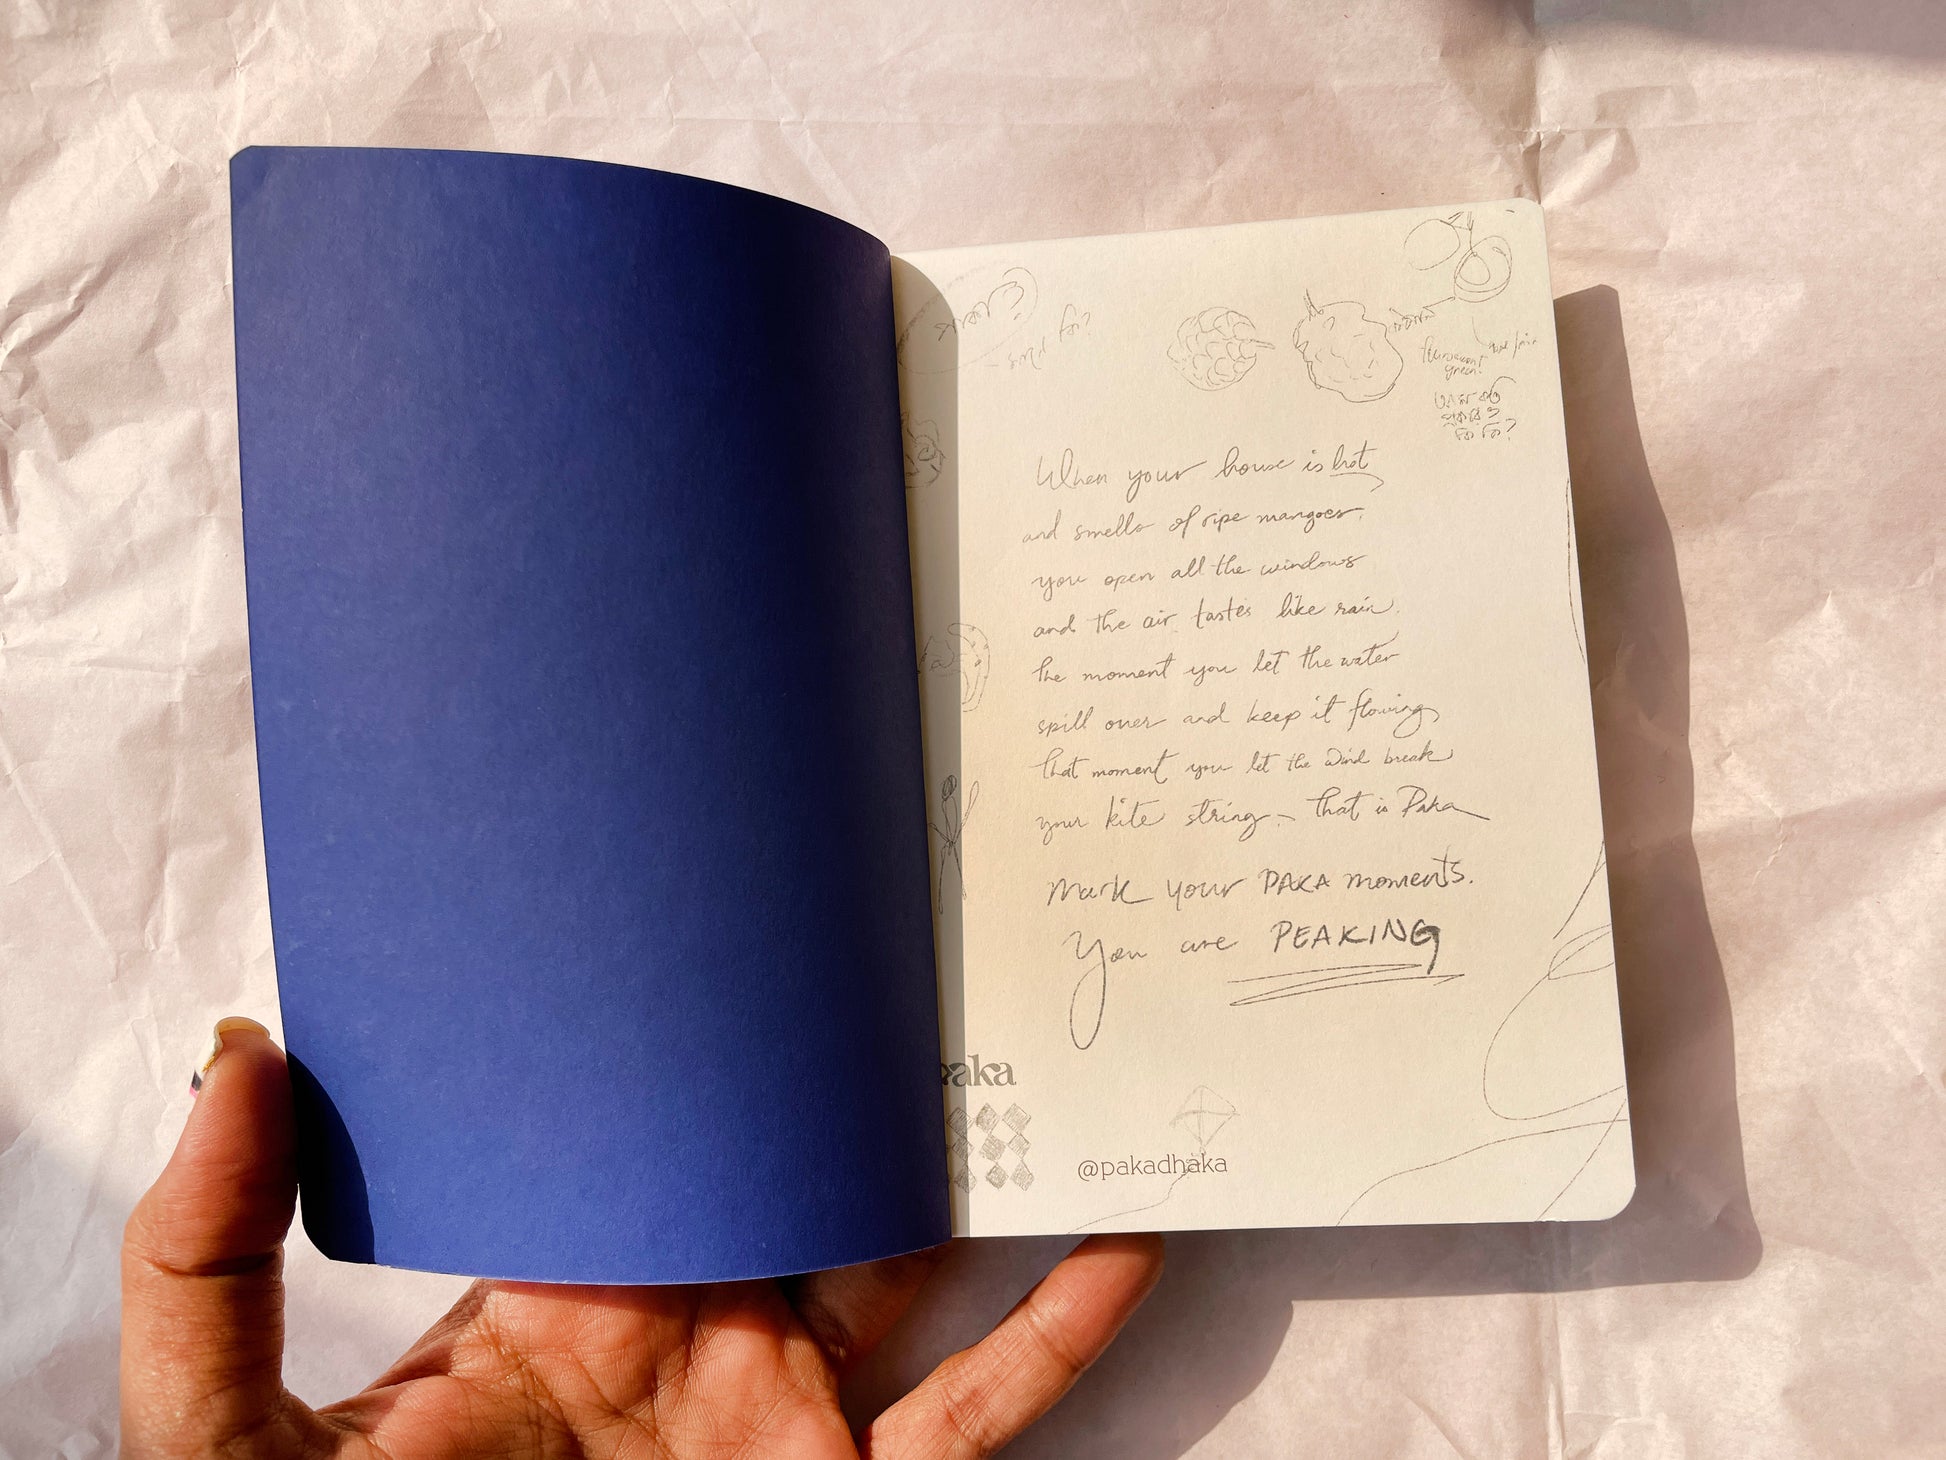 কি?
fluorescent
green!
কি কি?
When your house is hot
and smells of ripe mangoes,
you open all the windows
and the air tastes like rain.
The moment you let the water
spill over and keep it flowing
that moment you let the wind break
your kite string – that is Paka
Mark your PAKA moments.
You are PEAKING
paka
@pakadhaka